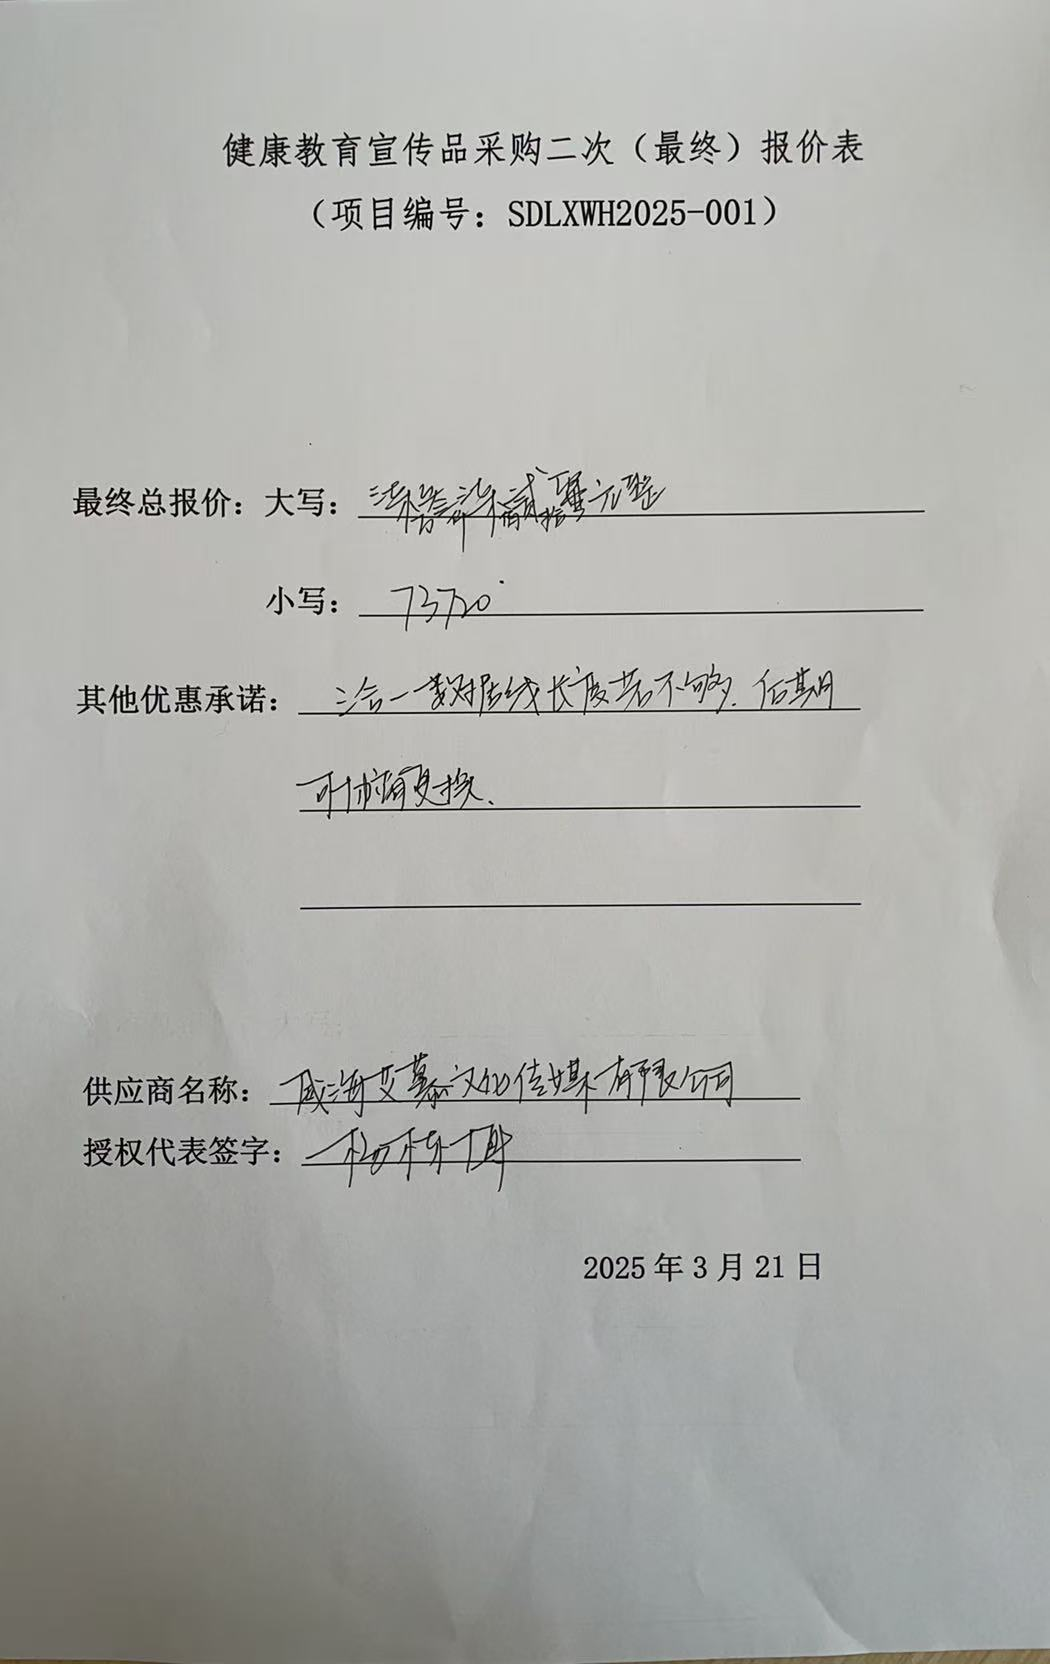 健康教育宣传品采购二次（最终）报价表
（项目编号：SDLXWH2025-001）
最终总报价：大写：柒万叁仟柒佰贰拾元整
小写：73720
其他优惠承诺：三合一数据线长度若不够，后期
可协商更换。
供应商名称：威海艾慕文化传媒有限公司
授权代表签字：
2025年3月21日